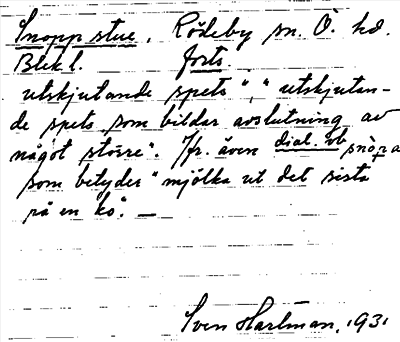 Snopp stue. Rödeby sn. Ö. hd.
Blek. l. forts.
utskjutande spets", "utskjutan-
de spets som bildar avslutning av
något större". Jfr. även dial. vb snòpa
som betyder "mjölka ut det sista
på en ko". —
Sven Hartman, 1931